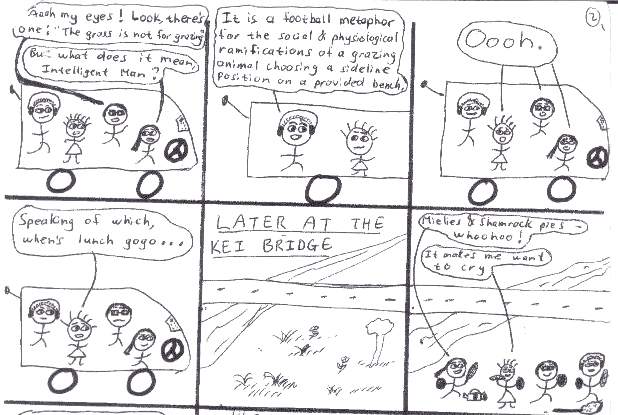 Aaah my eyes! Look, there's
one: "The grass is not for grazing"
But what does it mean,
Intelligent Man?
It is a football metaphor
for the social & physiological
ramifications of a grazing
animal choosing a sideline
position on a provided bench.
2
Oooh.
Speaking of which,
when's lunch gogo...
LATER AT THE
KEI BRIDGE
Mielies & Shamrock pies -
whoohoo!
It makes me want
to cry